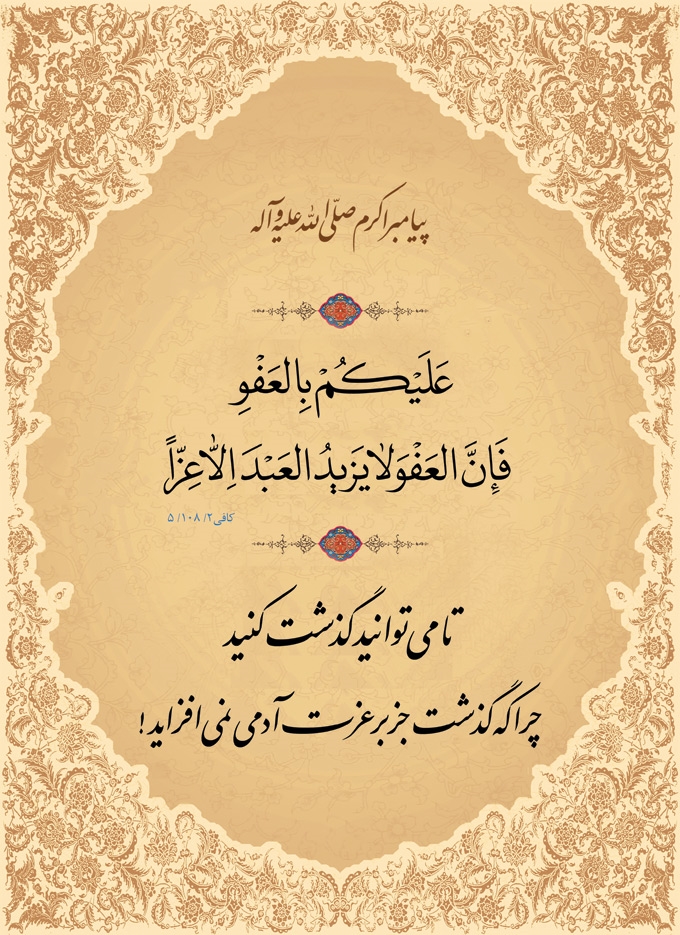 پیامبر اکرم صلّی الله علیه و آله
عَلَيْكُمْ بِالعَفْوِ
فَإِنَّ العَفْوَ لا يَزيدُ العَبْدَ اِلّا عِزّاً
کافی ۲/ ۱۰۸/ ۵
تا می توانید گذشت کنید
چرا که گذشت جز بر عزت آدمی نمی افزاید!